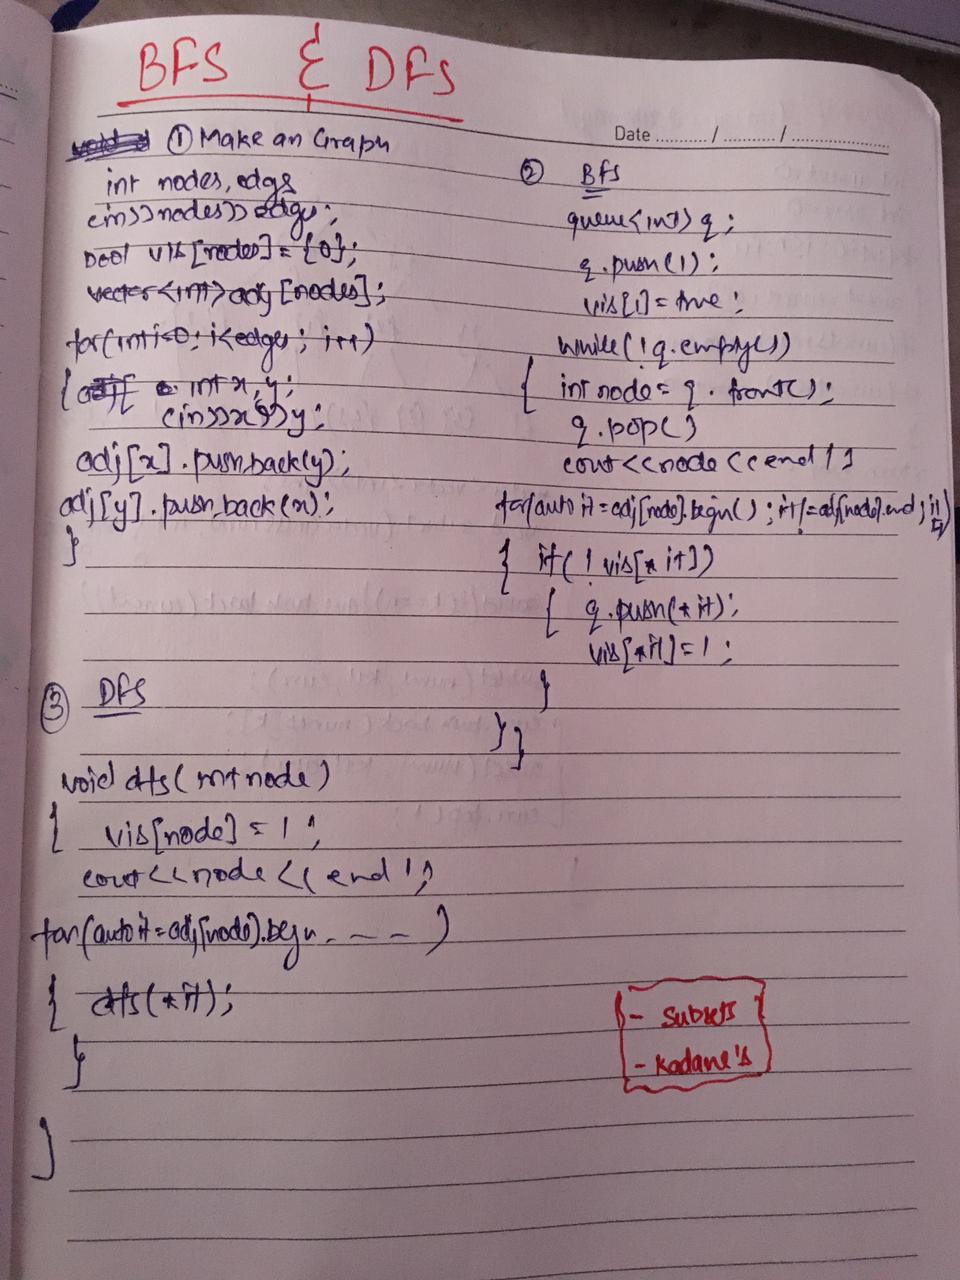 BFS & DFS
Date ........../........../..................
① Make an Graph
int nodes, edgs
cin>>nodes>>edges;
bool vis[nodes]={0};
vector<int>adj[nodes];
for(int i=0; i<edges; i++)
{ int x,y;
cin>>x>>y;
adj[x].push_back(y);
adj[y].push_back(x);
}
② Bfs
queue<int> q;
q.push(1);
vis[1]=true;
while(!q.empty())
{ int node = q.front();
q.pop()
cout<<node<<endl;
for(auto it=adj[node].begin(); it!=adj[node].end; it++)
{ if(! vis[*it])
{ q.push(*it);
vis[*it]=1;
}
} }
③ DFS
void dfs(int node)
{ vis[node] = 1;
cout<<node<<endl;
for(auto it=adj[node].begin - - - )
{ dfs(*it);
}
}
- Subsets
- Kadane's